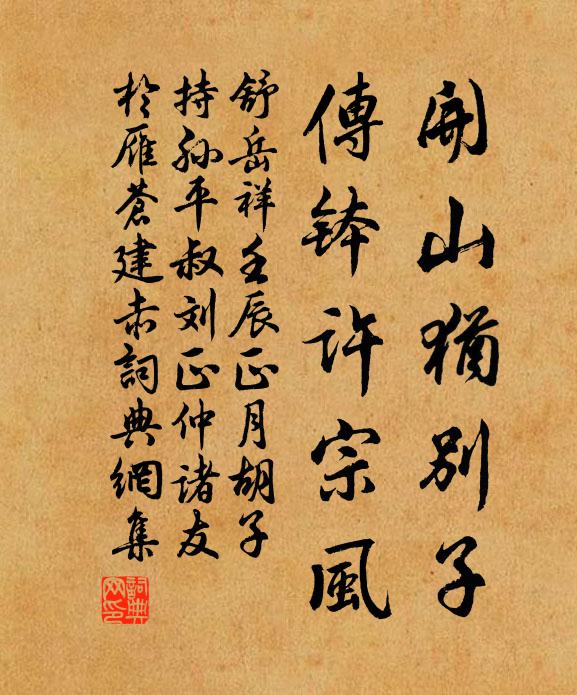 開山猶別子
傳鉢許宗風
舒岳祥壬辰正月胡子
持孙平叔刘正仲诸友
於雁蒼建赤詞典網集
詞典网印